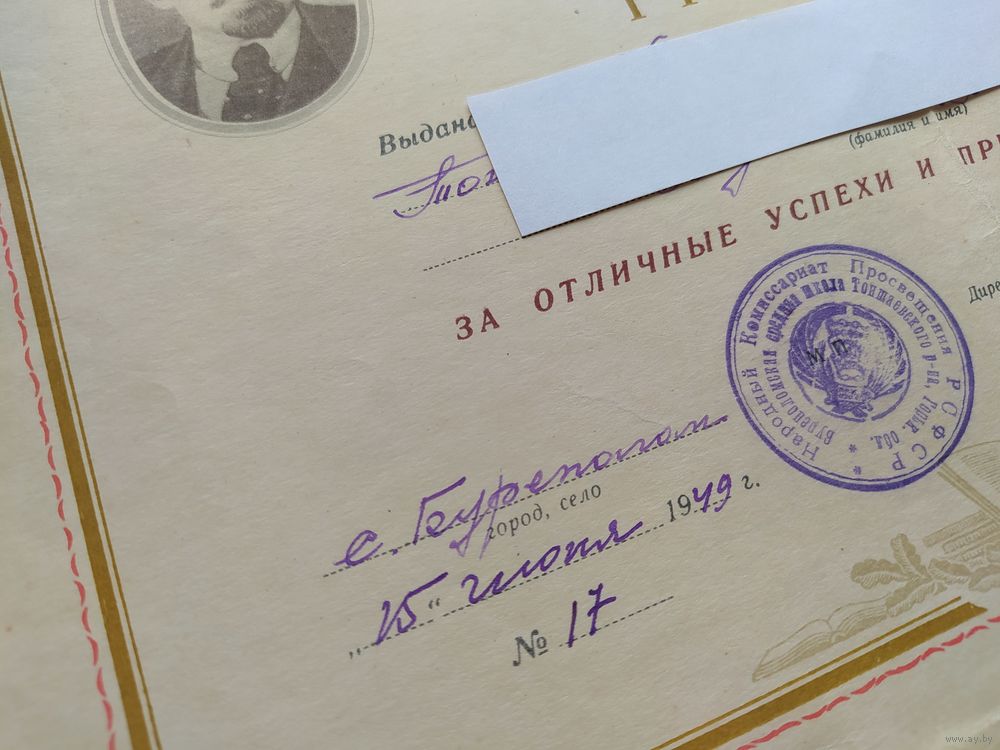 Выдано
(фамилия и имя)
ЗА ОТЛИЧНЫЕ УСПЕХИ И ПРИ
Дире
Народный Комиссариат Просвещения РСФСР
Буреполомская средняя школа Тоншаевского р-на, Горьк. обл.
М П
с. Буреполом
город, село
„15“ июня 1949 г.
№ 17
www.ay.by